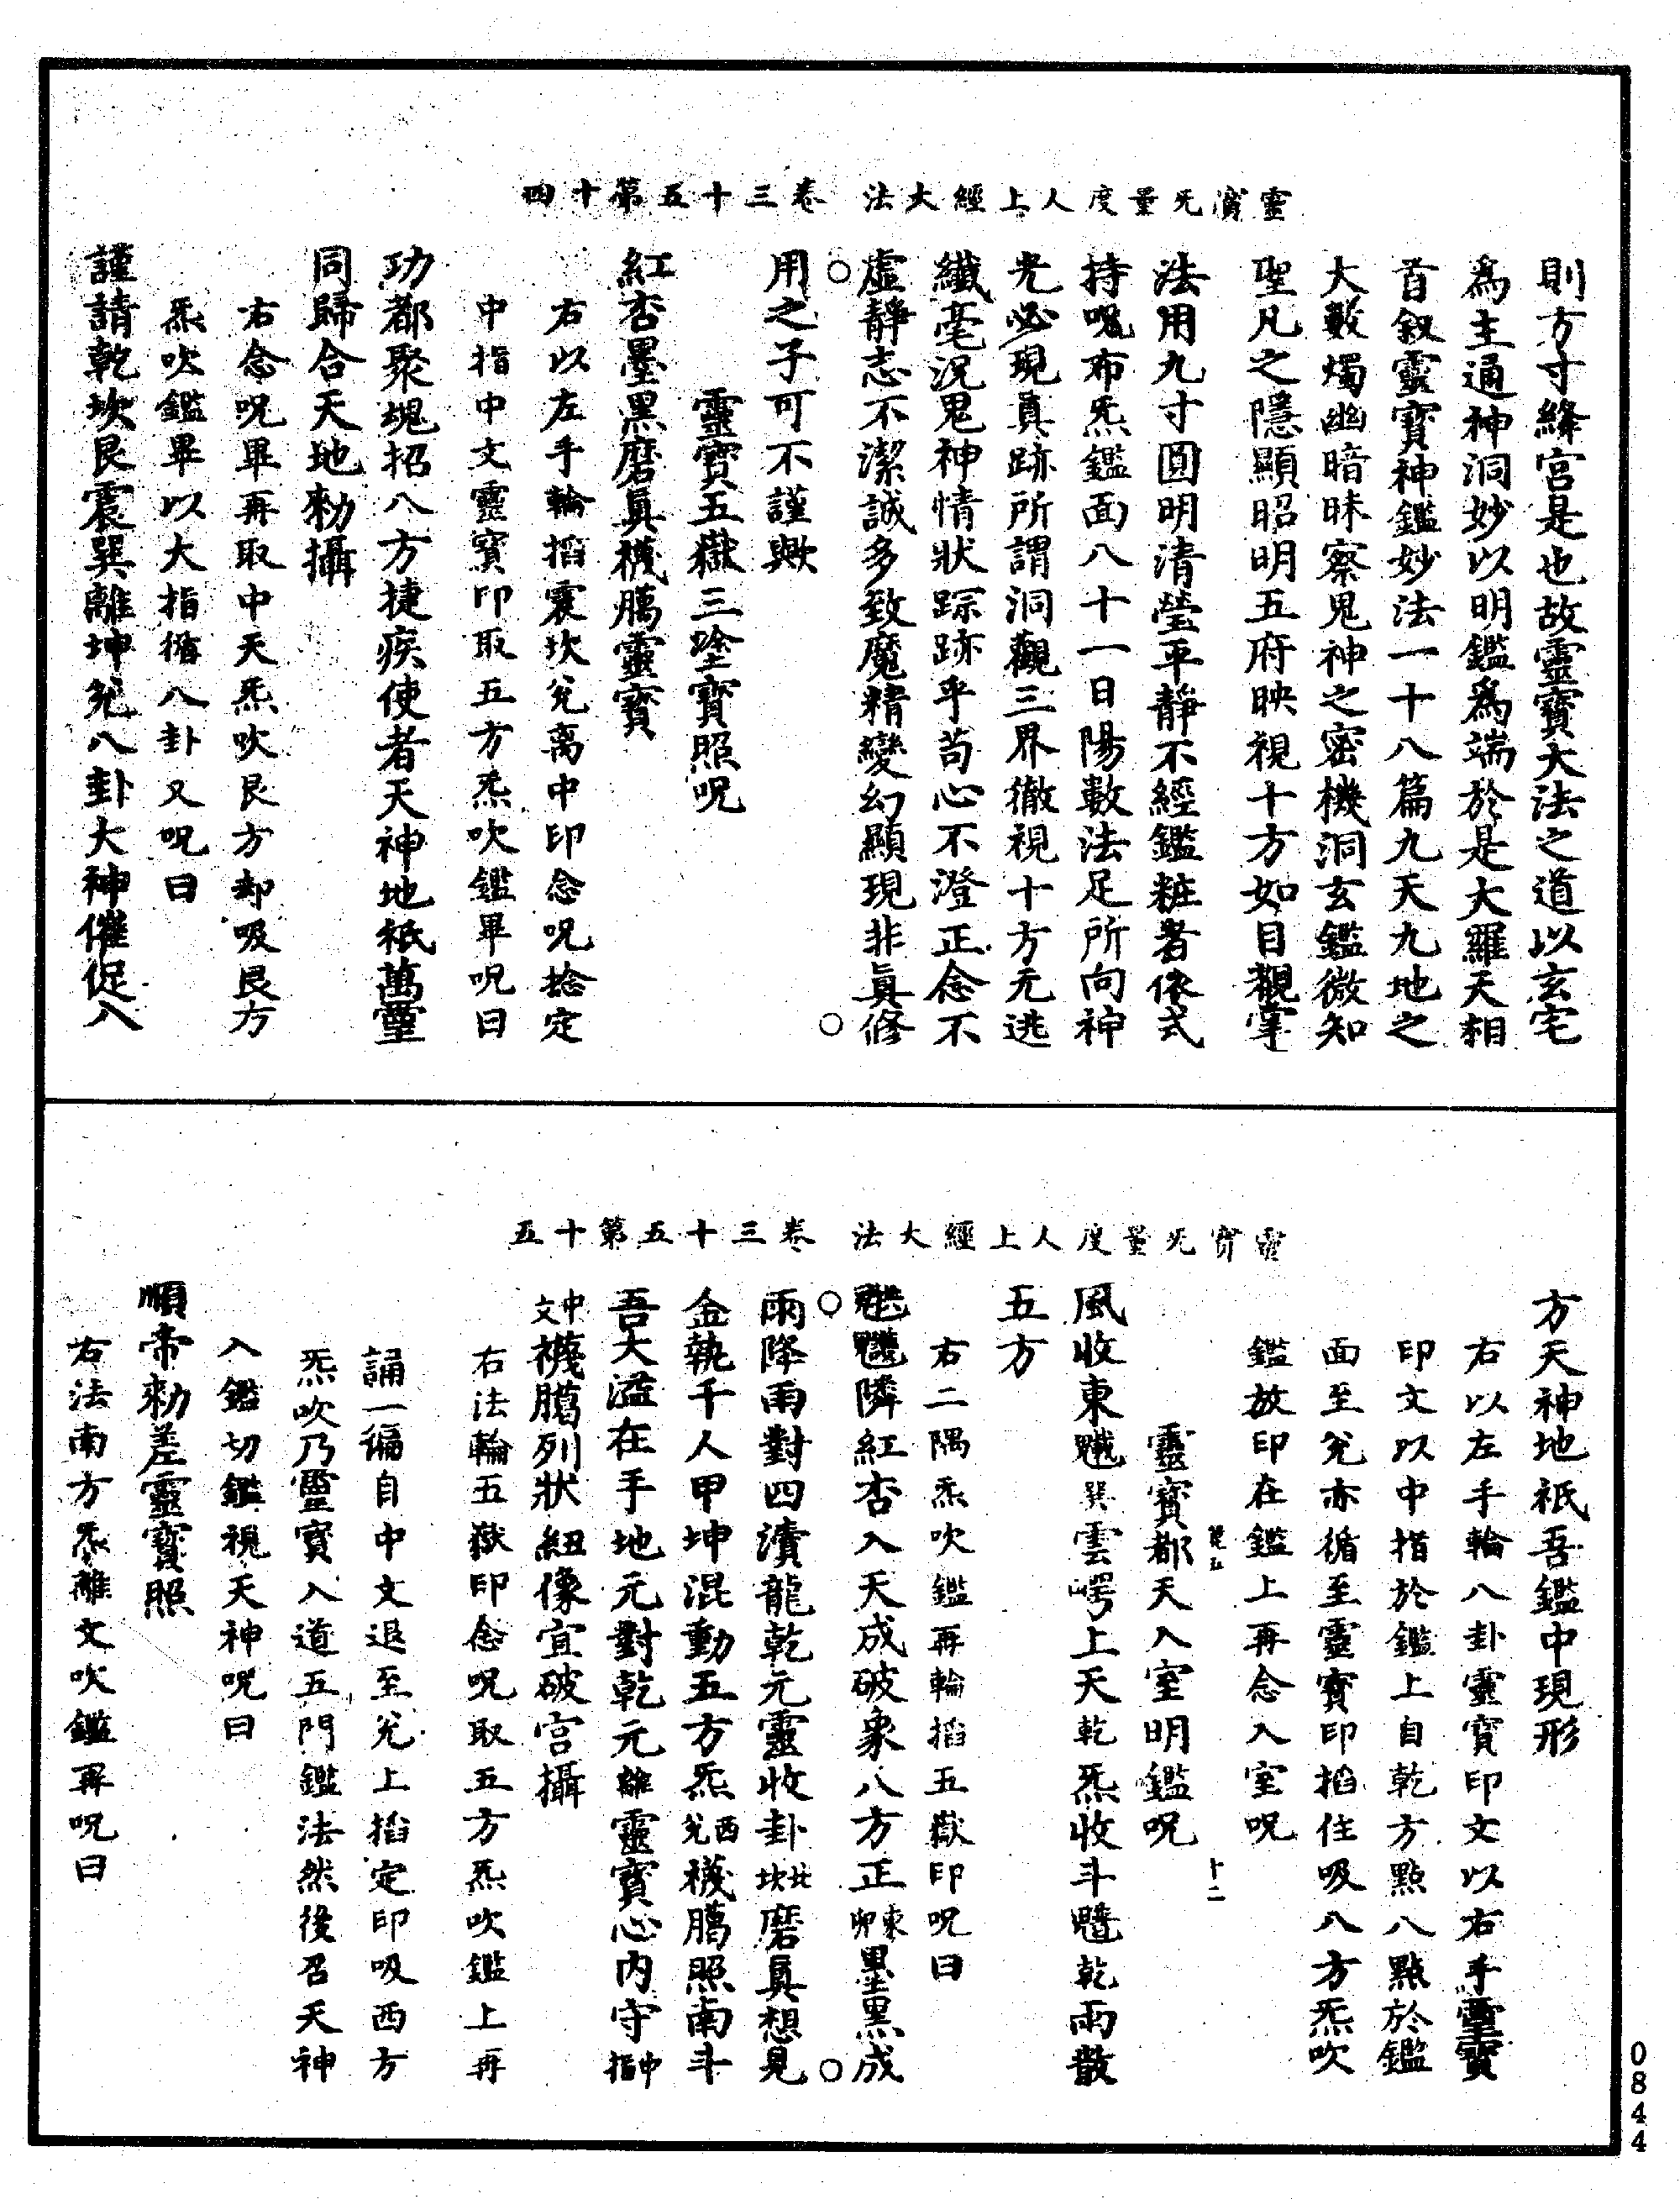 靈寳无量度人上經大法　卷三十五第十四
則方寸絳宮是也故靈寳大法之道以玄宅
爲主通神洞妙以明鑑爲端於是大羅天相
首叙靈寳神鑑妙法一十八篇九天九地之
大數燭幽暗昧察鬼神之密機洞玄鑑微知
聖凡之隱顯昭明五府映視十方如目觀掌
法用九寸圓明清瑩平靜不經鑑粧者依式
持呪布炁鑑面八十一日陽數法足所向神
光必現真跡所謂洞觀三界徹視十方无逃
纖毫況鬼神情狀踪跡乎苟心不澄正念不
虛靜志不潔誠多致魔精變幻顯現非眞修
用之子可不謹歟
靈寳五嶽三塗寳照呪
紅杏墨黑磨眞䙲臈靈寳
右以左手輪掐震坎兊离中印念呪捻定
中指中文靈寳印取五方炁吹鑑畢呪曰
功都聚塊招八方捷疾使者天神地祇萬靈
同歸合天地勑攝
右念呪畢再取中天炁吹艮方却吸艮方
炁吹鑑畢以大指循八卦又呪曰
謹請乾坎艮震巽離坤兊八卦大神催促入
靈寳无量度人上經大法　卷三十五第十五
方天神地祇吾鑑中現形
右以左手輪八卦靈寳印文以右手靈寳
印文以中指於鑑上自乾方點八點於鑑
面至兊亦循至靈寳印掐住吸八方炁吹
鑑放印在鑑上再念入室呪
靈寳都天入室明鑑呪
十二
風收東巽雲㟧上天乾炁收斗乾雨散
五方
右二隅炁吹鑑再輪掐五嶽印呪曰
隣紅杏入天成破象八方正東卯墨黑成
雨降雨對四瀆龍乾元靈收卦北坎磨眞想見
金執千人甲坤混動五方炁西兊䙲臈照南斗
吾大溢在手地元對乾元離靈寳心內守中指
中文䙲臈列狀紐像宜破宮攝
右法輪五嶽印念呪取五方炁吹鑑上再
誦一徧自中文退至兊上掐定印吸西方
炁吹乃靈寳入道五門鑑法然後召天神
入鑑切鑑視天神呪曰
順帝勑差靈寳照
右法南方炁離文吹鑑再呪曰
0844